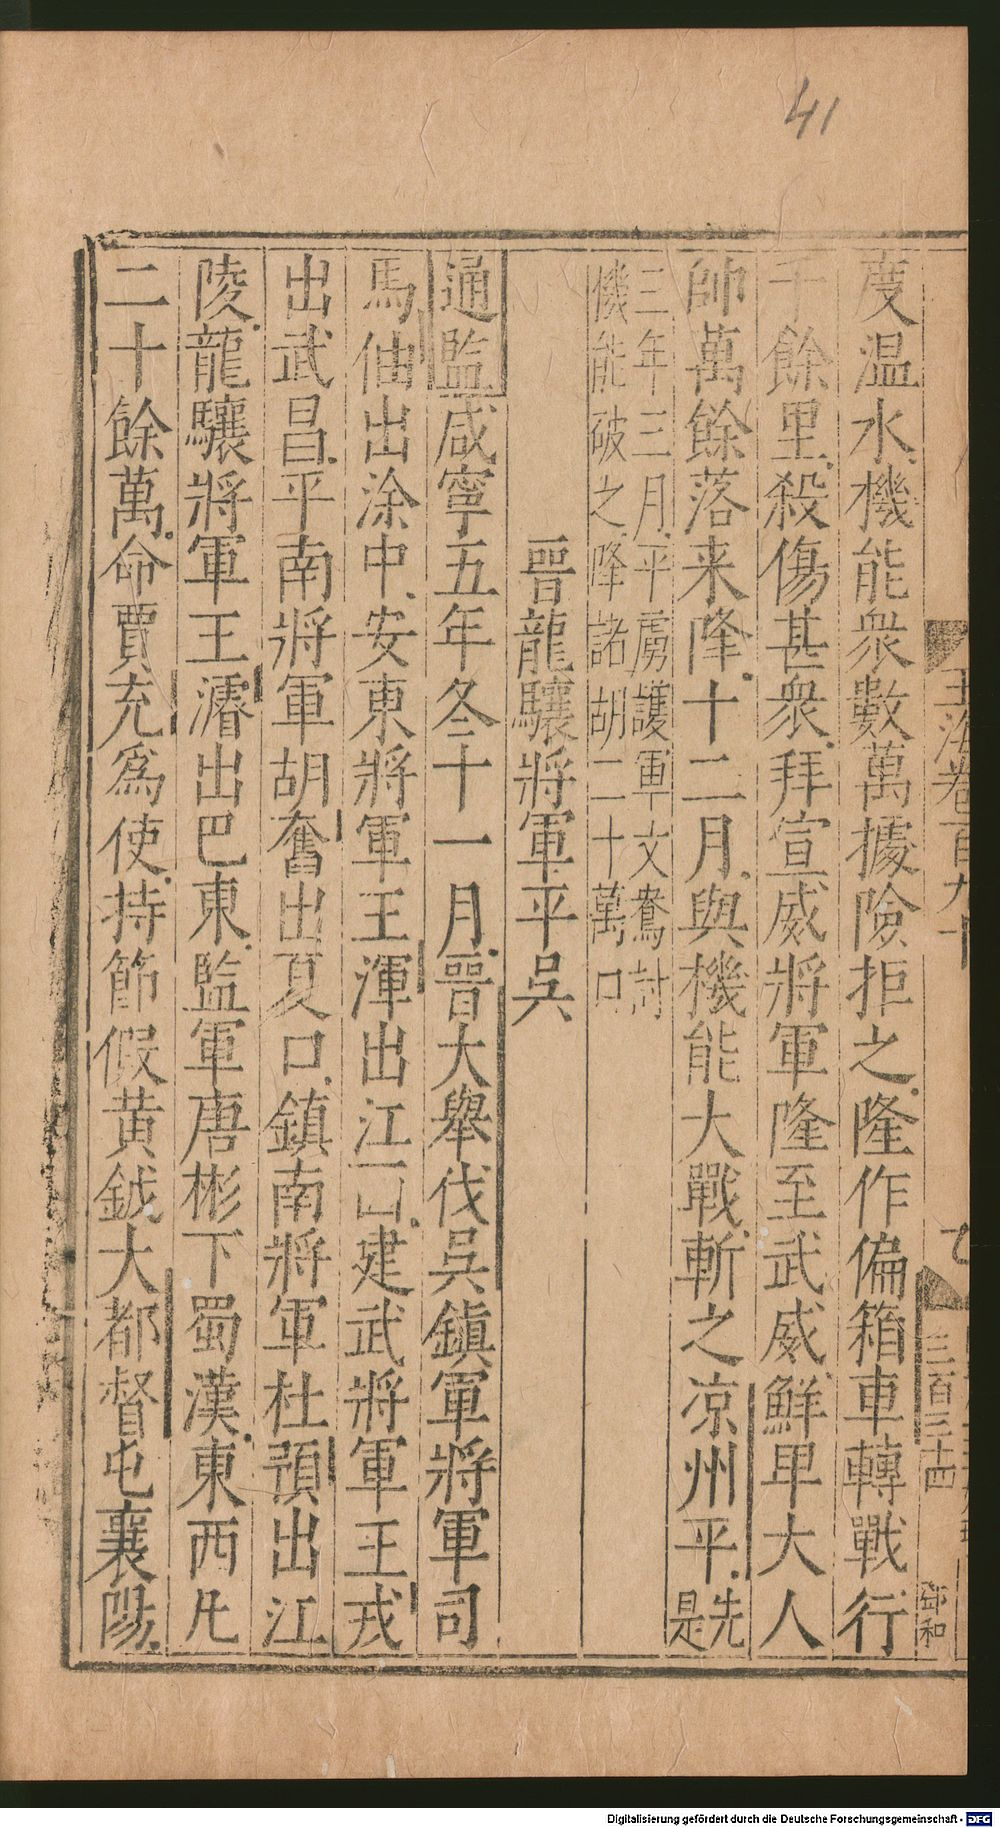 41
玉海卷百九十
三百三十四
邱和
度温水機能衆數萬據險拒之隆作偏箱車轉戰行
千餘里殺傷甚衆拜宣威將軍隆至武威鮮卑大人
帥萬餘落来降十二月與機能大戰斬之凉州平先是
三年三月平虜護軍文鴦討
機能破之降諸胡二十萬口
晉龍驤將軍平吳
通監咸寧五年冬十一月晉大舉伐吳鎮軍將軍司
馬伷出涂中安東將軍王渾出江口建武將軍王戎
出武昌平南將軍胡奮出夏口鎮南將軍杜預出江
陵龍驤將軍王濬出巴東監軍唐彬下蜀漢東西凡
二十餘萬命賈充為使持節假黄鉞大都督屯襄陽
Digitalisierung gefördert durch die Deutsche Forschungsgemeinschaft - DFG